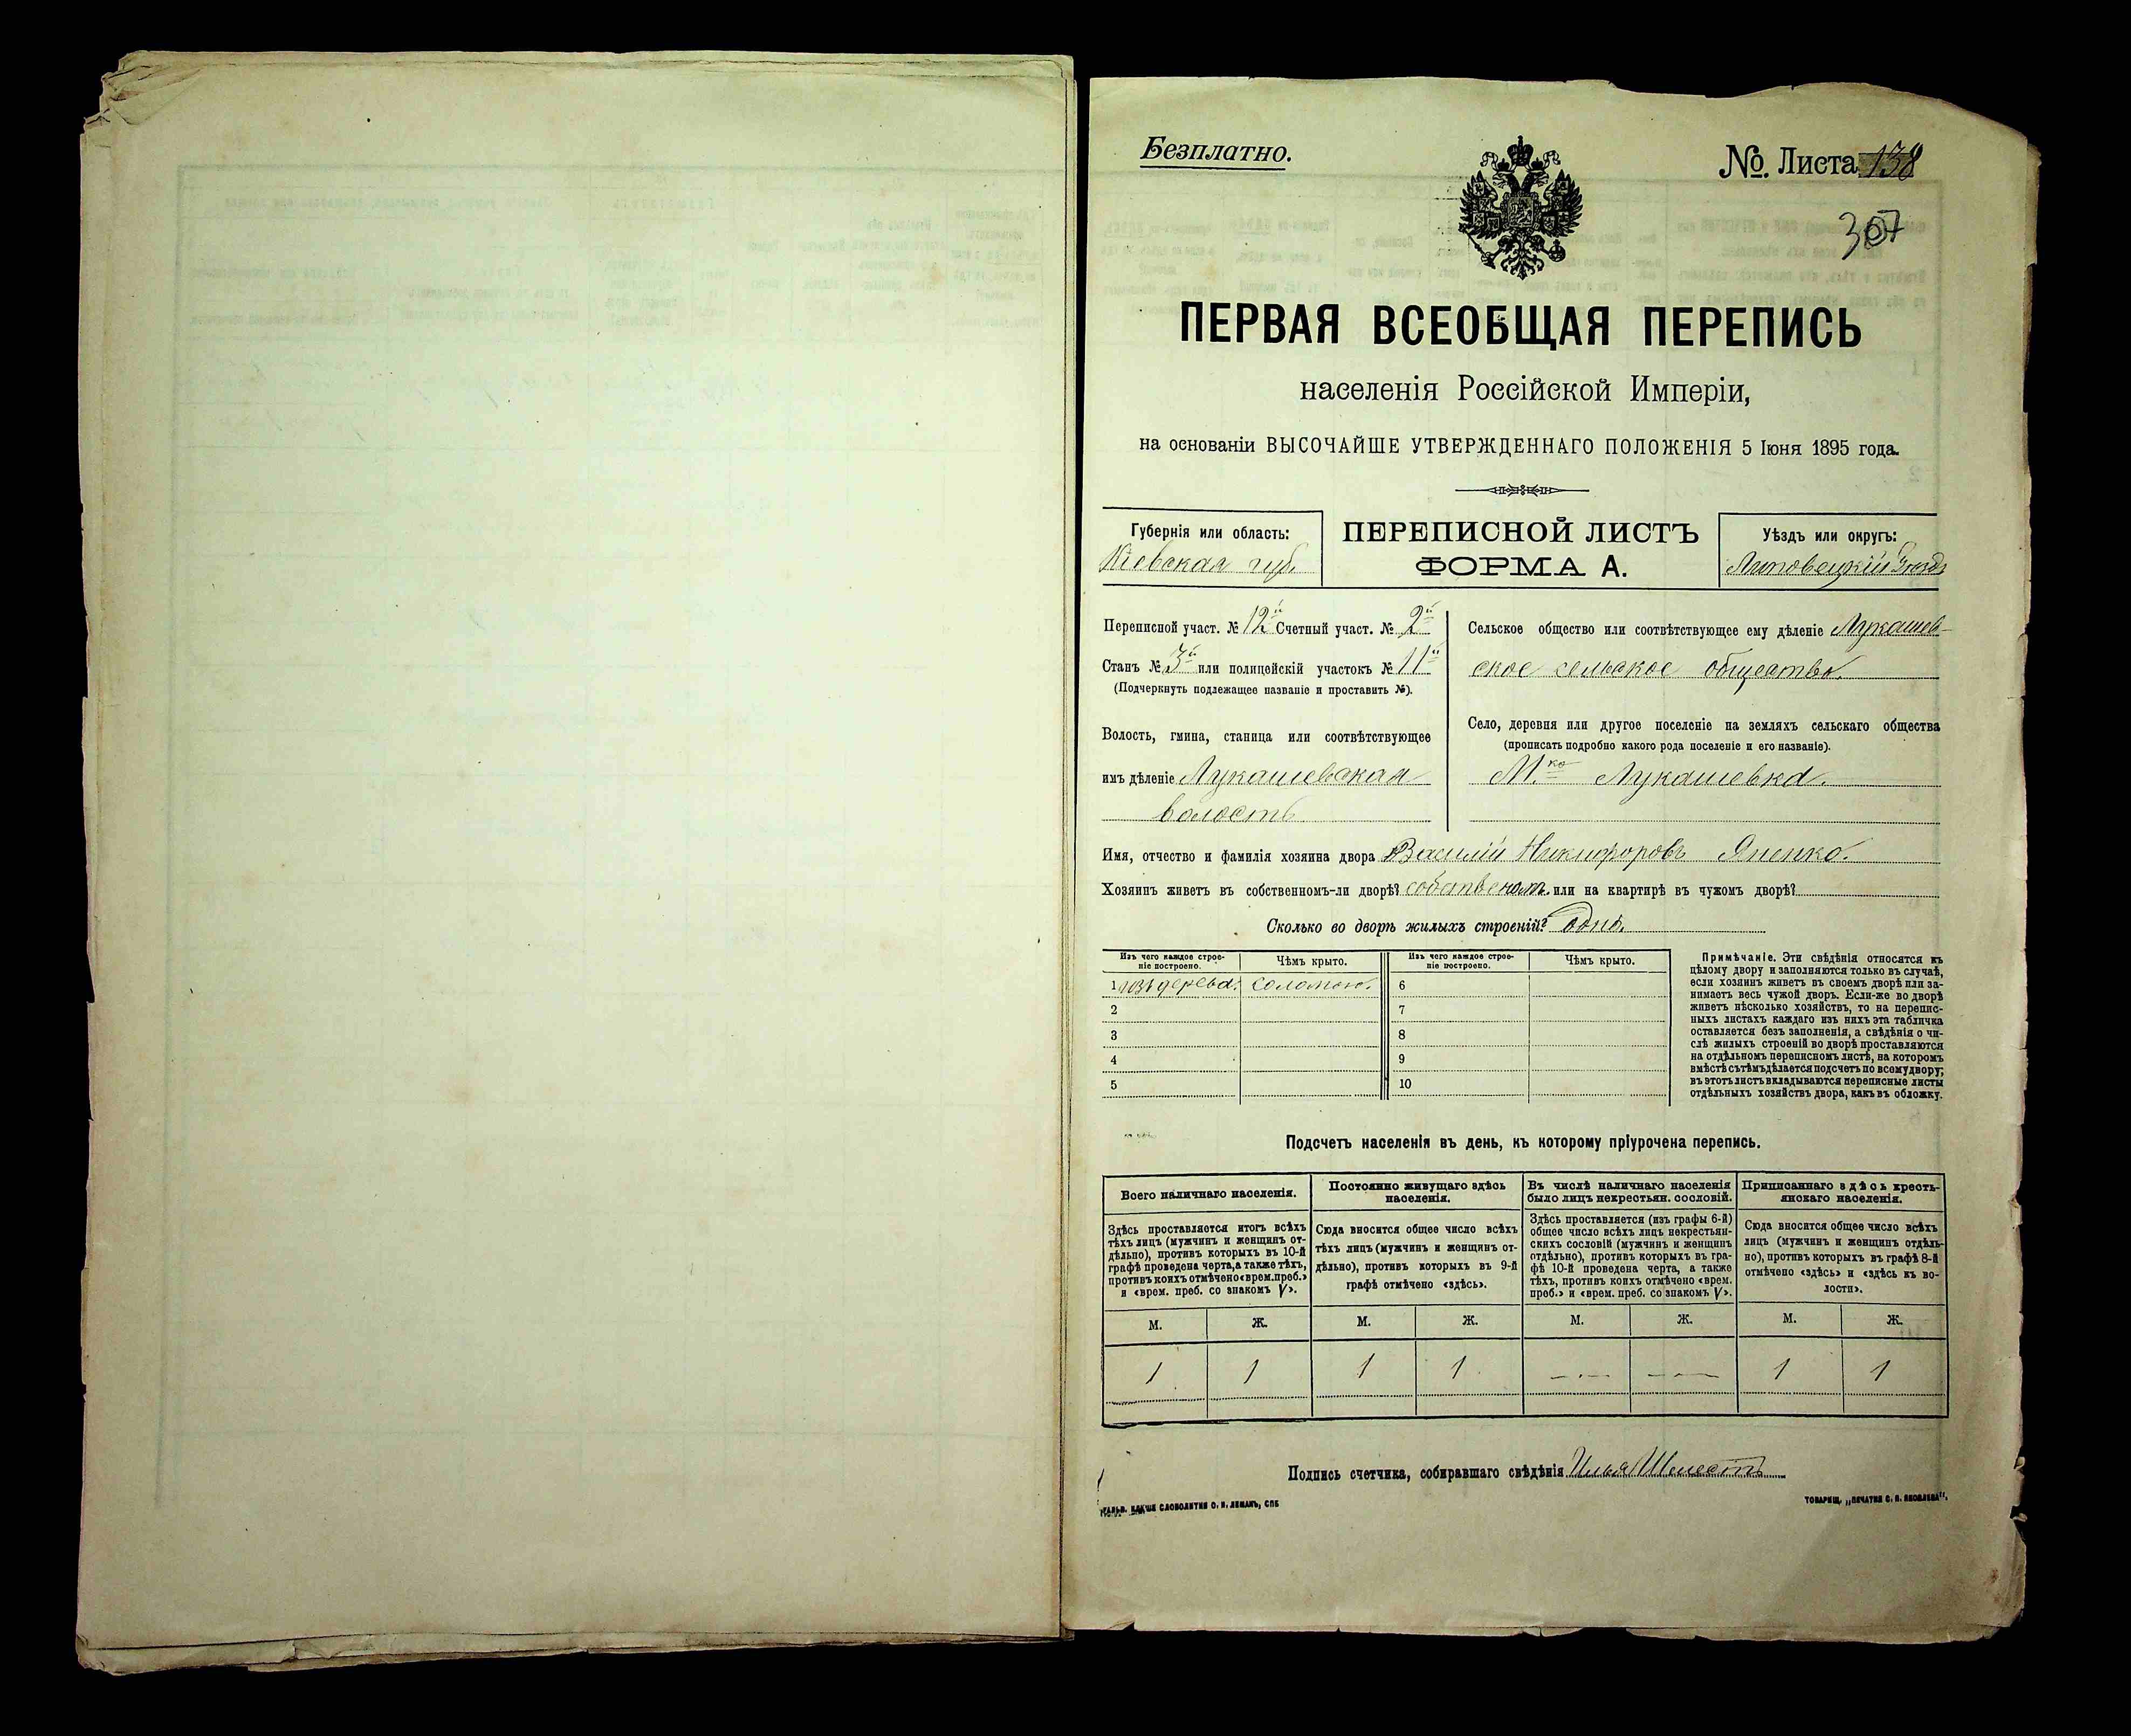 Безплатно.
№. Листа 138
307
ПЕРВАЯ ВСЕОБЩАЯ ПЕРЕПИСЬ
населенія Россійской Имперіи,
на основаніи ВЫСОЧАЙШЕ УТВЕРЖДЕННАГО ПОЛОЖЕНІЯ 5 Іюня 1895 года.
Губернія или область:
Кіевская губ.
ПЕРЕПИСНОЙ ЛИСТЪ
ФОРМА А.
Уѣздъ или округъ:
Липовецкій Уѣздъ
Переписной участ. № 12й Счетный участ. № 2й
Станъ № 3й или полицейскій участокъ № 11й
(Подчеркнуть подлежащее названіе и проставить №).
Волость, гмина, станица или соотвѣтствующее
имъ дѣленіе Лукашевская
волость
Сельское общество или соотвѣтствующее ему дѣленіе Лукашев-
ское сельское общество.
Село, деревня или другое поселеніе на земляхъ сельскаго общества
(прописать подробно какого рода поселеніе и его названіе).
М.ко Лукашевка.
Имя, отчество и фамилія хозяина двора Василій Никифоровъ
Хозяинъ живетъ въ собственномъ-ли дворѣ? собственомъ. или на квартирѣ въ чужомъ дворѣ?
Сколько во дворѣ жилыхъ строеній? одно.
Изъ чего каждое строе-
ніе построено.
Чѣмъ крыто.
Изъ чего каждое строе-
ніе построено.
Чѣмъ крыто.
1 изъ дерева. соломою. 6
2 7
3 8
4 9
5 10
Примѣчаніе. Эти свѣдѣнія относятся къ
цѣлому двору и заполняются только въ случаѣ,
если хозяинъ живетъ въ своемъ дворѣ или за-
нимаетъ весь чужой дворъ. Если-же во дворѣ
живетъ нѣсколько хозяйствъ, то на перепис-
ныхъ листахъ каждаго изъ нихъ эта табличка
оставляется безъ заполненія, а свѣдѣнія о чи-
слѣ жилыхъ строеній во дворѣ проставляются
на отдѣльномъ переписномъ листѣ, на которомъ
вмѣстѣ съ тѣмъ дѣлается подсчетъ по всему двору;
въ этотъ листъ вкладываются переписные листы
отдѣльныхъ хозяйствъ двора, какъ въ обложку.
Подсчетъ населенія въ день, къ которому пріурочена перепись.
Всего наличнаго населенія.
Здѣсь проставляется итогъ всѣхъ
тѣхъ лицъ (мужчинъ и женщинъ от-
дѣльно), противъ которыхъ въ 10-й
графѣ проведена черта, а также тѣхъ,
противъ коихъ отмѣчено «врем. преб.»
и «врем. преб. со знакомъ V».
Постоянно живущаго здѣсь
населенія.
Сюда вносится общее число всѣхъ
тѣхъ лицъ (мужчинъ и женщинъ от-
дѣльно), противъ которыхъ въ 9-й
графѣ отмѣчено «здѣсь».
Въ числѣ наличнаго населенія
было лицъ некрестьян. сословій.
Здѣсь проставляется (изъ графы 6-й)
общее число всѣхъ лицъ некрестьян-
скихъ сословій (мужчинъ и женщинъ
отдѣльно), противъ которыхъ въ гра-
фѣ 10-й проведена черта, а также
тѣхъ, противъ коихъ отмѣчено «врем.
преб.» и «врем. преб. со знакомъ V».
Приписаннаго здѣсь кресть-
янскаго населенія.
Сюда вносится общее число всѣхъ
лицъ (мужчинъ и женщинъ отдѣль-
но), противъ которыхъ въ графѣ 8-й
отмѣчено «здѣсь» и «здѣсь къ во-
лости».
М. Ж. М. Ж. М. Ж. М. Ж.
1 1 1 1 — — 1 1
Подпись счетчика, собиравшаго свѣдѣнія Илья Шелестъ
СЛОВОЛИТНИ О. И. ЛЕМАНЪ, СПБ
ТОВАРИЩ. „ПЕЧАТНЯ С. П. ЯКОВЛЕВА".